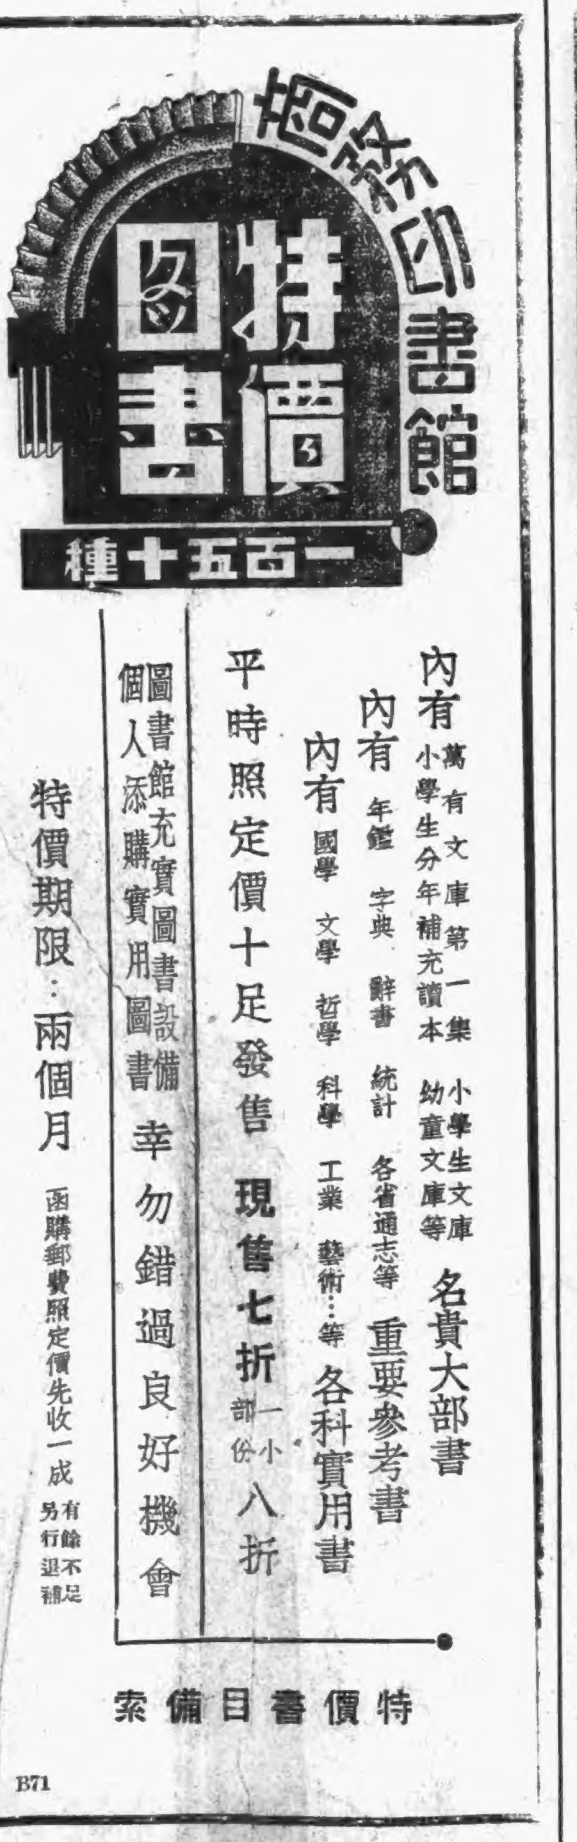 商務印書館
特價
圖書
一百五十種
內有
萬有文庫第一集 小學生文庫
小學生分年補充讀本 幼童文庫等
名貴大部書
內有 年鑑 字典 辭書 統計 各省通志等 重要參考書
內有 國學 文學 哲學 科學 工業 藝術…等 各科實用書
平時照定價十足發售 現售七折 一小部份 八折
圖書館充實圖書設備
個人添購實用圖書
幸勿錯過良好機會
特價期限：兩個月 函購郵費照定價先收一成
有餘不足
另行退補
特價書目備索
B71